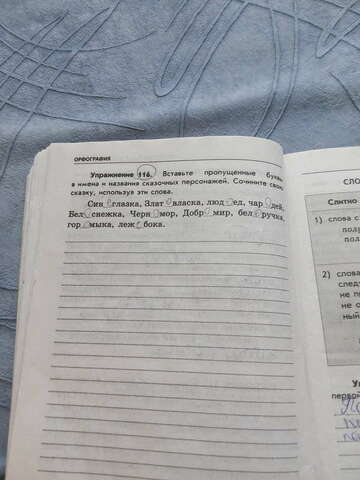 ОРФОГРАФИЯ
Упражнение 116. Вставьте пропущенные буквы
в имена и названия сказочных персонажей. Сочините свою
сказку, используя эти слова.
Син_глазка, Злат_власка, люд_ед, чар_дей,
Бел_снежка, Черн_мор, Добр_мир, бел_ручка,
гор_мыка, леж_бока.
СЛО
Слитно
1) слова с
2) слова
следу
не пр
не о
ный
первон